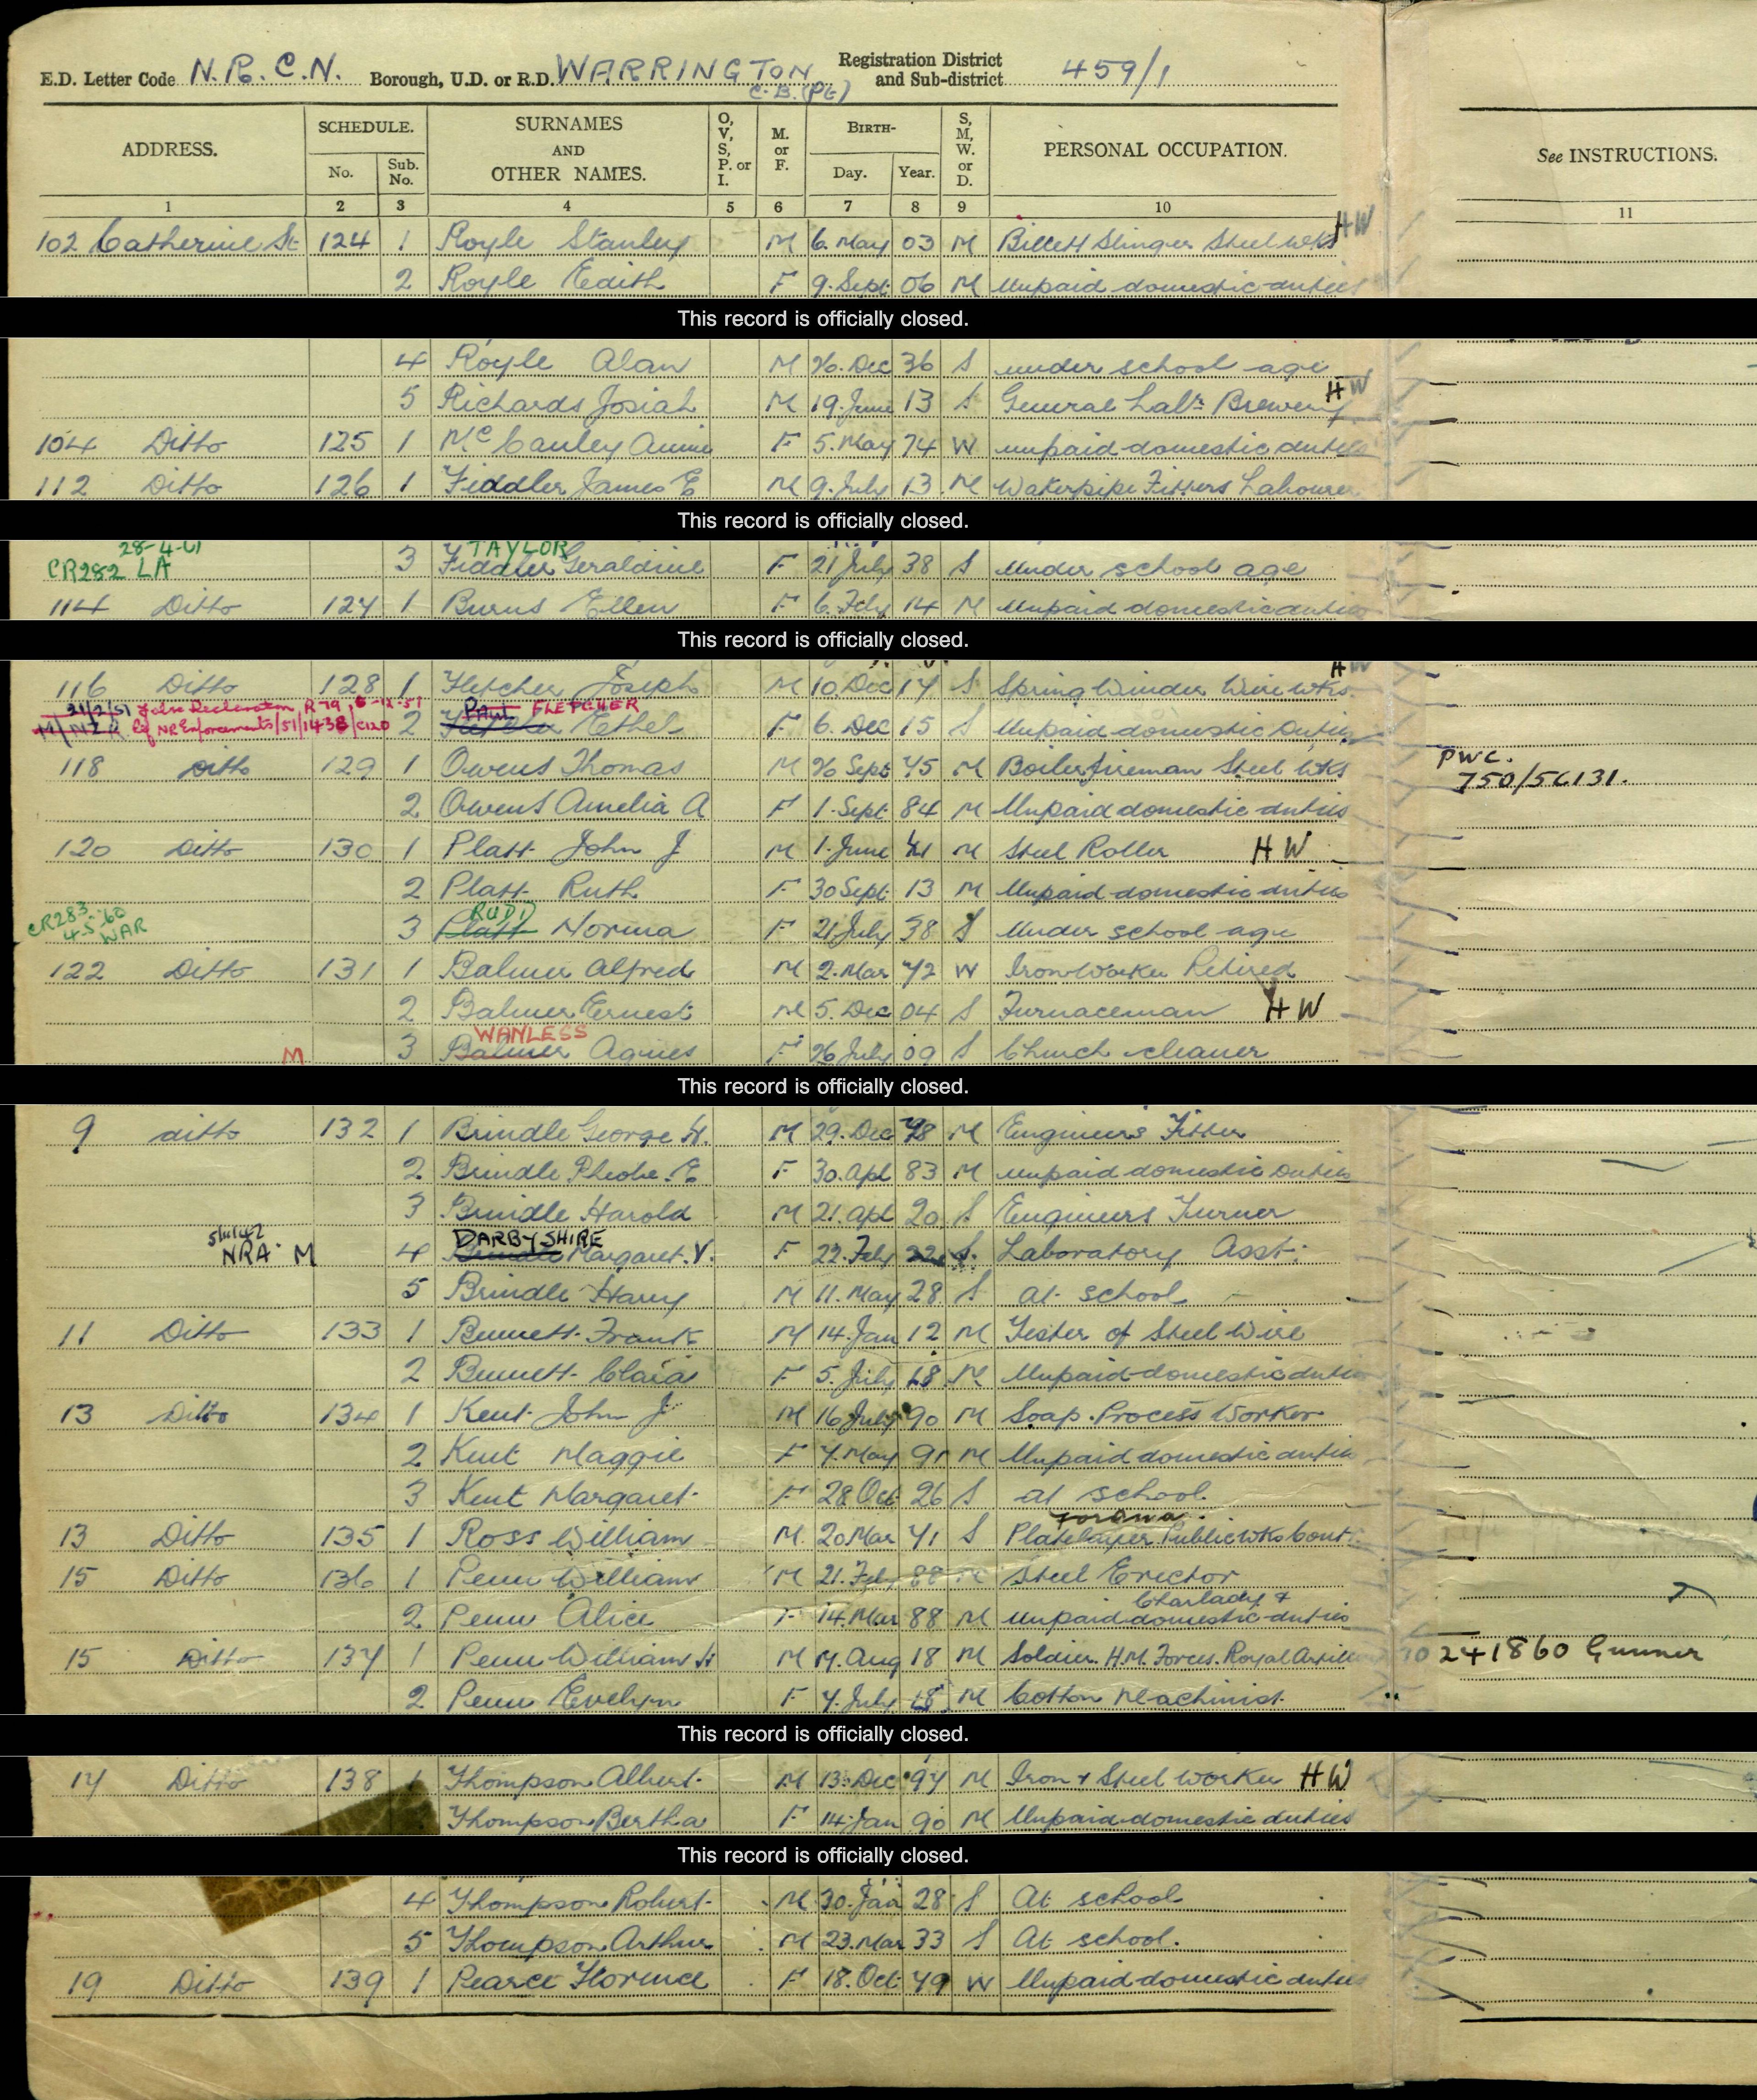 E.D. Letter Code N.R.C.N. Borough, U.D. or R.D. WARRINGTON C.B.(Pt) Registration District and Sub-district 459/1
ADDRESS. SCHEDULE. No. Sub. No. SURNAMES AND OTHER NAMES. O, V, S, P. or I. M. or F. BIRTH- Day. Year. S, M, W. or D. PERSONAL OCCUPATION. See INSTRUCTIONS.
1 2 3 4 5 6 7 8 9 10 11
102 Catherine St 124 1 Royle Stanley M 6. May 03 M Billett Slinger Steel Wks HW
2 Royle Edith F 9. Sept 06 M Unpaid domestic duties
This record is officially closed.
4 Royle Alan M 26. Dec 36 S under school age
5 Richards Josiah M 19. June 13 S General Labr Brewery HW
104 Ditto 125 1 McCauley Annie F 5. May 74 W unpaid domestic duties
112 Ditto 126 1 Fiddler James E M 9. July 13 M Waterpipe Fitters Labourer
This record is officially closed.
28-4-61 TAYLOR
CR282 LA 3 Fiddler Geraldine F 21 July 38 S Under school age
114 Ditto 127 1 Burns Ellen F 6. Feby 14 M Unpaid domestic duties
This record is officially closed.
HW
116 Ditto 128 1 Fletcher Joseph M 10. Dec 14 S Spring Winder Wire Wks
False Declaration, R79, PAUL FLETCHER
NR Enforcements/51/1438/C120 2 Ethel F 6. Dec 15 S Unpaid domestic Duties
118 Ditto 129 1 Owens Thomas M 26 Sept 75 M Boiler fireman Steel Wks PWC. 750/56131.
2 Owens Amelia A F 1. Sept 84 M Unpaid domestic duties
120 Ditto 130 1 Platt John J M 1. June M Steel Roller HW
2 Platt Ruth F 30 Sept 13 M Unpaid domestic duties
CR283 4.5.60 WAR RUDD
3 Platt Norma F 21 July 38 S Under school age
122 Ditto 131 1 Balmer Alfred M 2. Mar 72 W Iron Worker Retired
2 Balmer Ernest M 5. Dec 04 S Furnaceman HW
WANLESS
M 3 Balmer Agnes F 26 July 09 S Church cleaner
This record is officially closed.
9 ditto 132 1 Brindle George H. M 29. Dec 78 M Engineers Fitter
2 Brindle Pheobe. E F 30. Apl 83 M unpaid domestic Duties
3 Brindle Harold M 21. Apl 20 S Engineers Turner
5/11/42 DARBYSHIRE
NRA. M 4 Brindle Margaret. V. F 22. Feby 22 S. Laboratory Asst.
5 Brindle Harry M 11. May 28 S at school
11 Ditto 133 1 Bennett Frank M 14. Jan 12 M Tester of Steel Wire
2 Bennett Clara F 5. July 18 M. Unpaid domestic duties
13 Ditto 134 1 Kent John J M 16 July 90 M Soap Process Worker
2 Kent Maggie F 7. May 91 M Unpaid domestic duties
3 Kent Margaret F 28 Oct 26 S at school.
13 Ditto 135 1 Ross William M. 20 Mar 71 S Platelayer Public Wks Cont.
15 Ditto 136 1 Penn William M 21. Feby 88 M Steel Erector
Charlady &
2 Penn Alice F 14. Mar 88 M unpaid domestic duties
15 Ditto 137 1 Penn William H M 17. Aug 18 M Soldier. H.M. Forces. Royal Artille 241860 Gunner
2 Penn Evelyn F 7. July 18 M Cotton Machinist
This record is officially closed.
17 Ditto 138 1 Thompson Albert M 13. Dec 97 M Iron & Steel Worker HW
Thompson Bertha F 14. Jan 90 M Unpaid domestic duties
This record is officially closed.
4 Thompson Robert M 30. Jan 28 S At school
5 Thompson Arthur M 23. Mar 33 S At school.
19 Ditto 139 1 Pearce Florence F 18. Oct 79 W Unpaid domestic duties